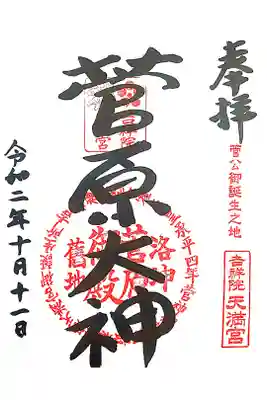 奉拝
菅公御誕生之地
吉祥院
天満宮
菅原大神
承平四年
舊地
令和二年十月十一日